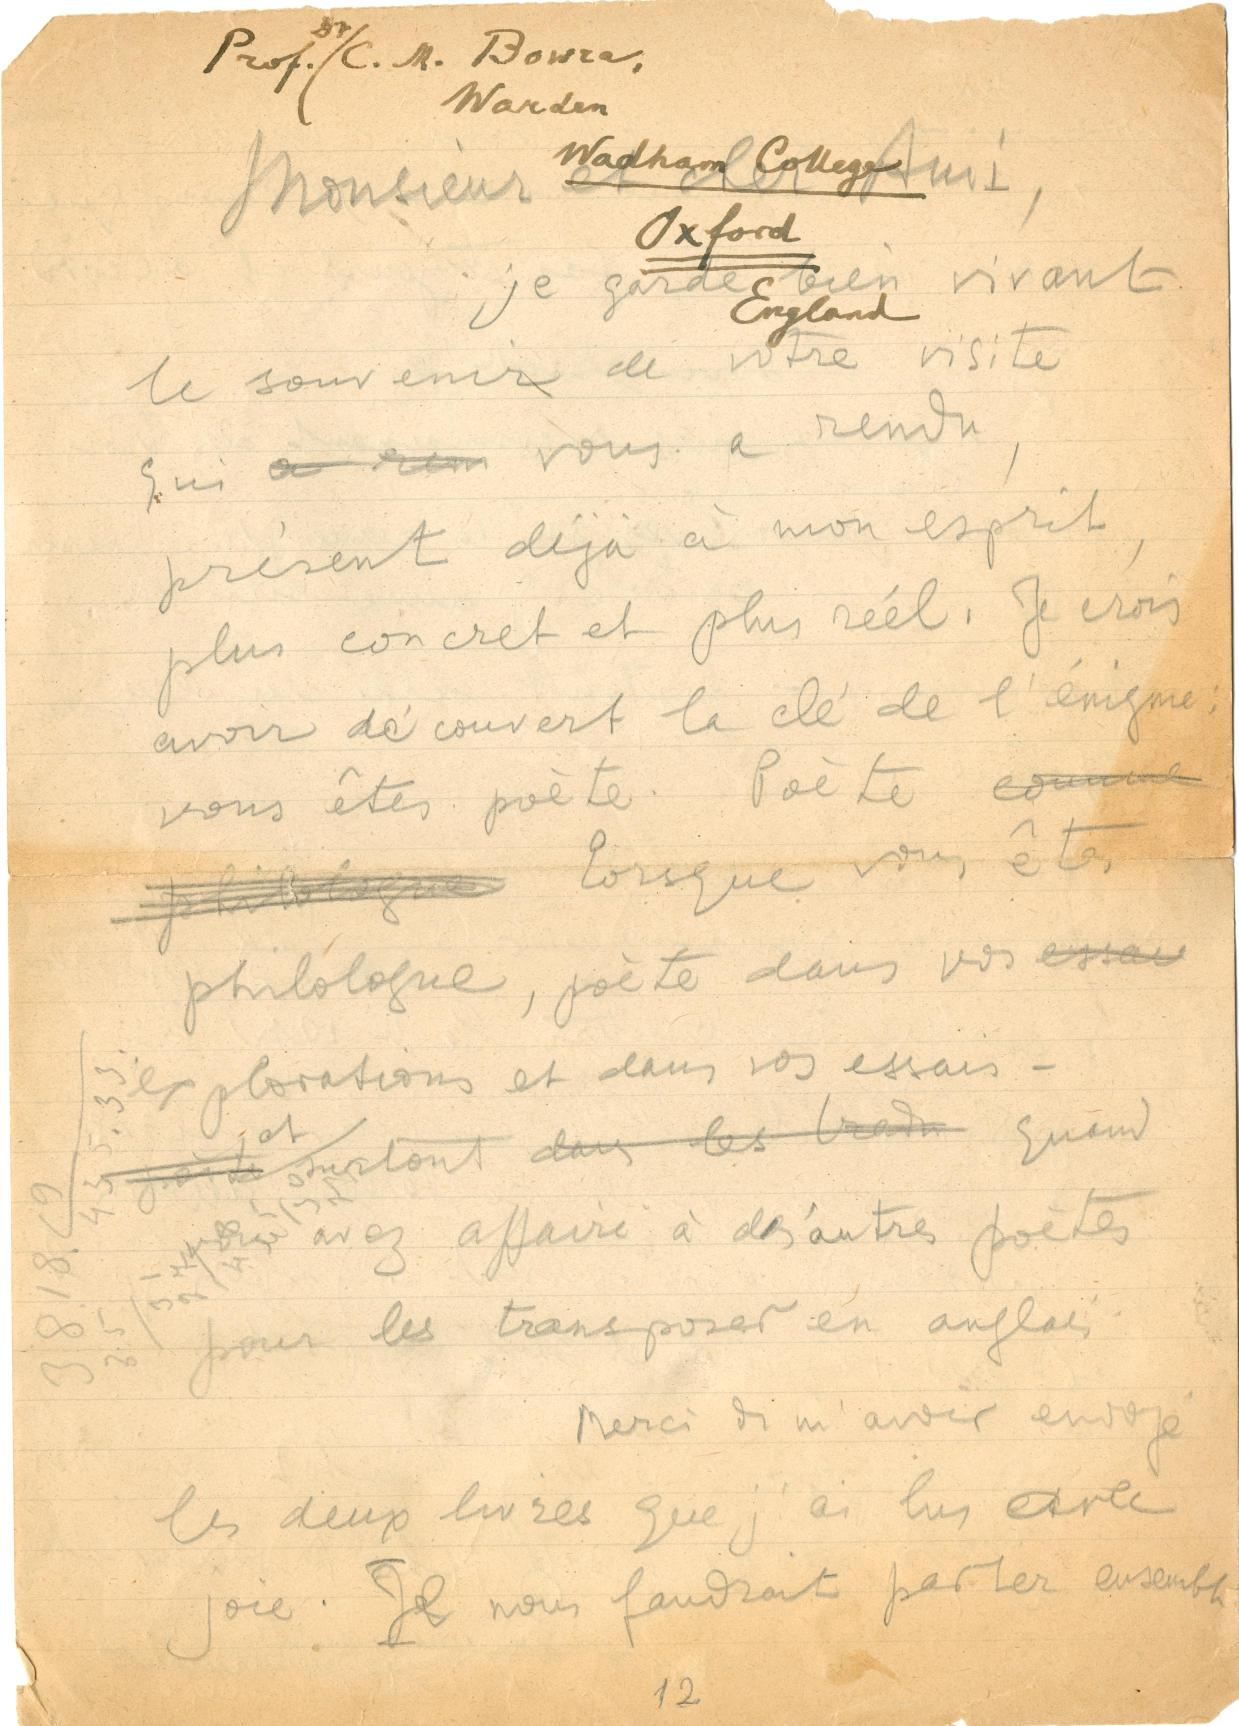 Prof. Dr/C. M. Bowra,
Warden
Wadham College
Oxford
England
Monsieur et cher Ami,
je garde bien vivant
le souvenir de votre visite
qui a ren vous a rendu,
présent déjà à mon esprit,
plus concret et plus réel. Je crois
avoir découvert la clé de l'énigme:
vous êtes poète. Poète comme
philologue lorsque vous êtes
philologue, poète dans vos essau
explorations et dans vos essais –
poète et surtout dans les tradu quand
vous avez affaire à des autres poètes
pour les transposer en anglais.
Merci de m'avoir envoyé
les deux livres que j'ai lus avec
joie. Il nous faudrait parler ensemble
12